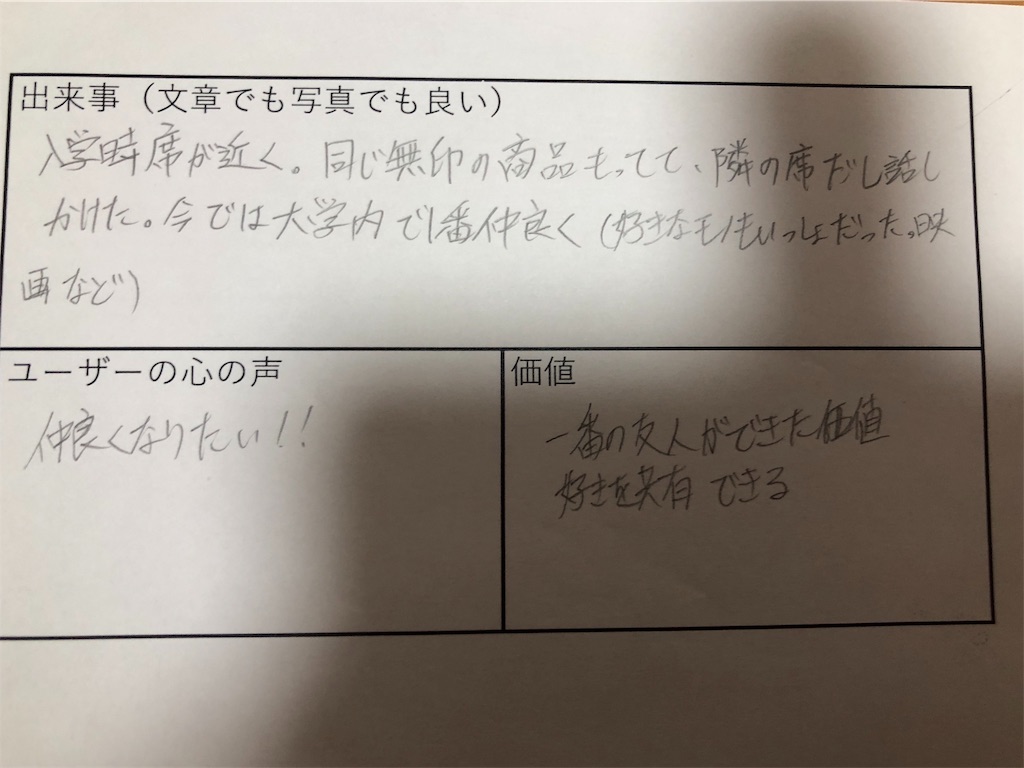 出来事（文章でも写真でも良い）
入学時席が近く。同じ無印の商品もってて、隣の席だし話し
かけた。今では大学内で1番仲良く（好きなモノもいっしょだった。映
画など）
ユーザーの心の声
仲良くなりたい！！
価値
一番の友人ができた価値
好きを共有できる